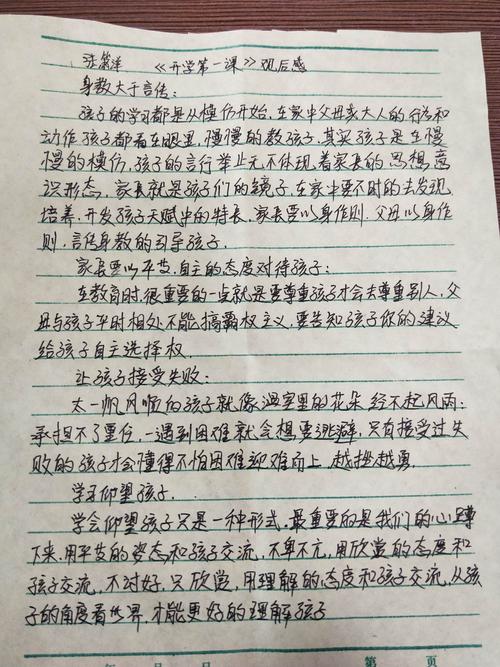 张 洋 《开学第一课》观后感
身教大于言传:
孩子的学习都是从模仿开始,在家中父母亲大人的行为和
动作,孩子都看在眼里,慢慢的教孩子,其实孩子是在慢
慢的模仿,孩子的言行举止无不体现着家长的思想意
识形态,家长就是孩子们的镜子,在家中要不时的去发现
培养、开发孩子天赋中的特长,家长要以身作则.父母以身作
则,言传身教的引导孩子.
家长要以平等.自主的态度对待孩子:
在教育时,很重要的一点就是要尊重孩子才会去尊重别人,父
母与孩子平时相处不能搞霸权主义,要告知孩子你的建议
给孩子自主选择权.
让孩子接受失败:
太一帆风顺的孩子就像温室里的花朵 经不起风雨;
承担不了重任,一遇到困难就会想要逃避,只有接受过失
败的孩子才会懂得不怕困难迎难而上,越挫越勇.
学习仰望孩子.
学会仰望孩子只是一种形式,最重要的是我们的心蹲
下来,用平等的姿态和孩子交流,不卑不亢,用欣赏的态度和
孩子交流,不讨好,只欣赏,用理解的态度和孩子交流,从孩
子的角度看世界,才能更好的理解孩子
年 月 日 第 页